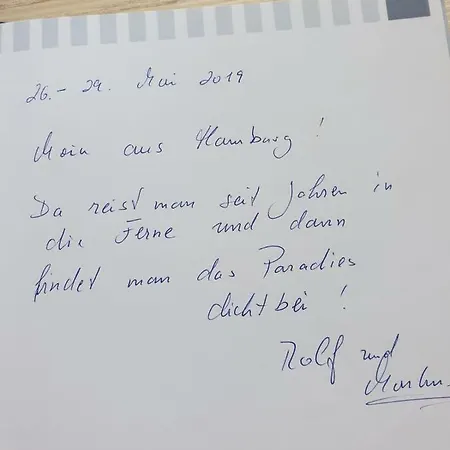 26. - 29. Mai 2019
Moin aus Hamburg !
Da reist man seit Jahren in
die Ferne und dann
findet man das Paradies
dicht bei !
Rolf und